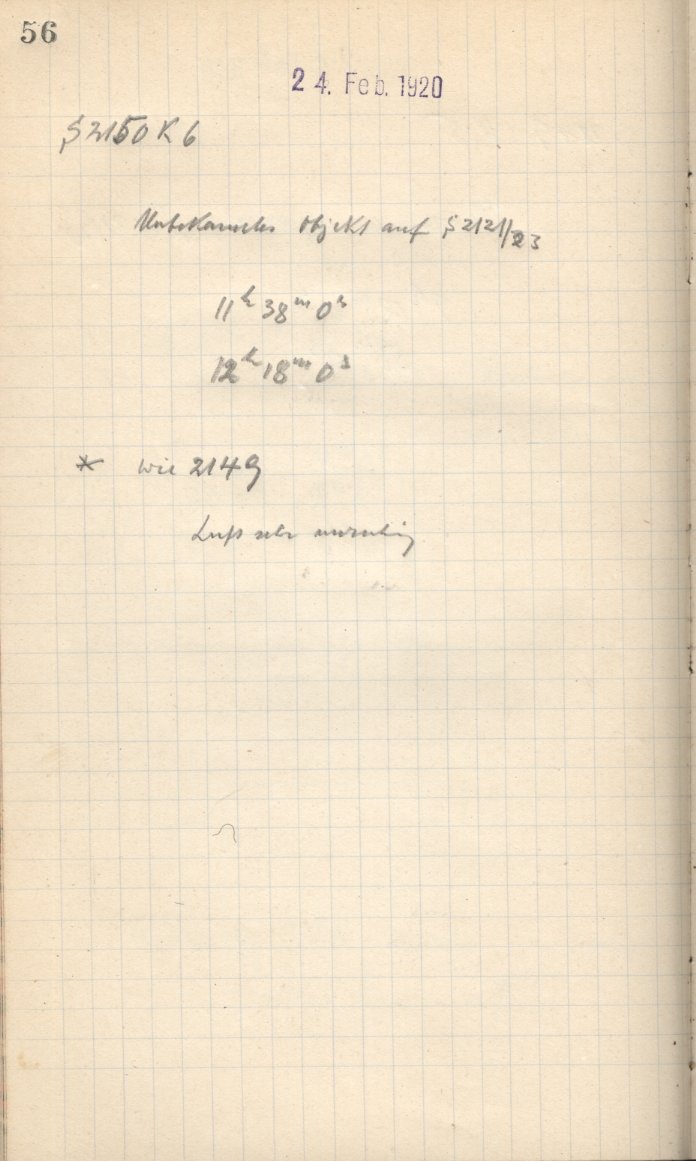 56
24. Feb. 1920
S 2150 K 6
Unbekanntes Objekt auf S 2121/23
11ʰ 38ᵐ 0ˢ
12ʰ 18ᵐ 0ˢ
* wie 2149
Luft sehr unruhig